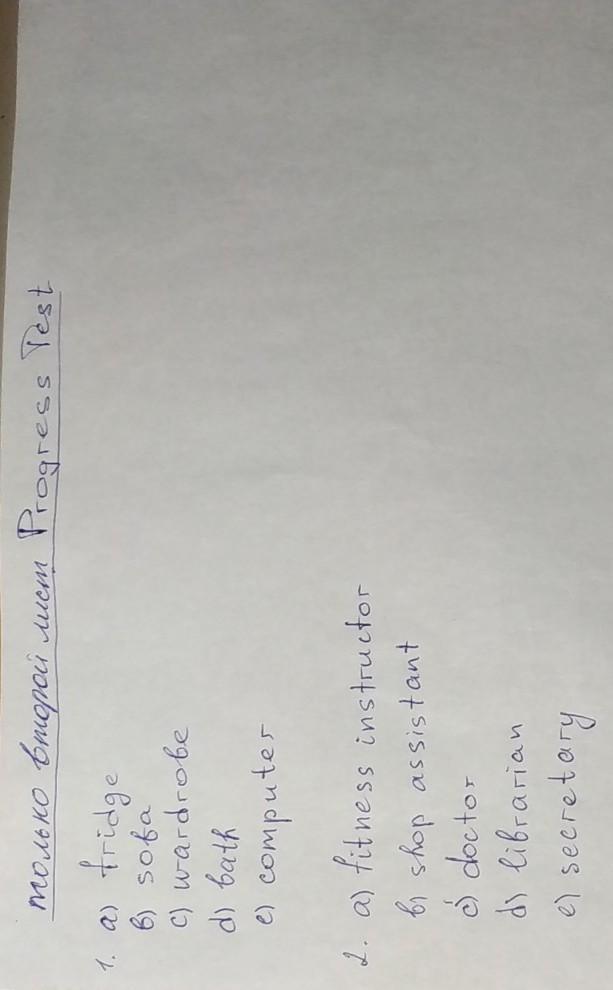 только второй лист Progress Test
1. a) fridge
b) sofa
c) wardrobe
d) bath
e) computer
2. a) fitness instructor
b) shop assistant
c) doctor
d) librarian
e) secretary